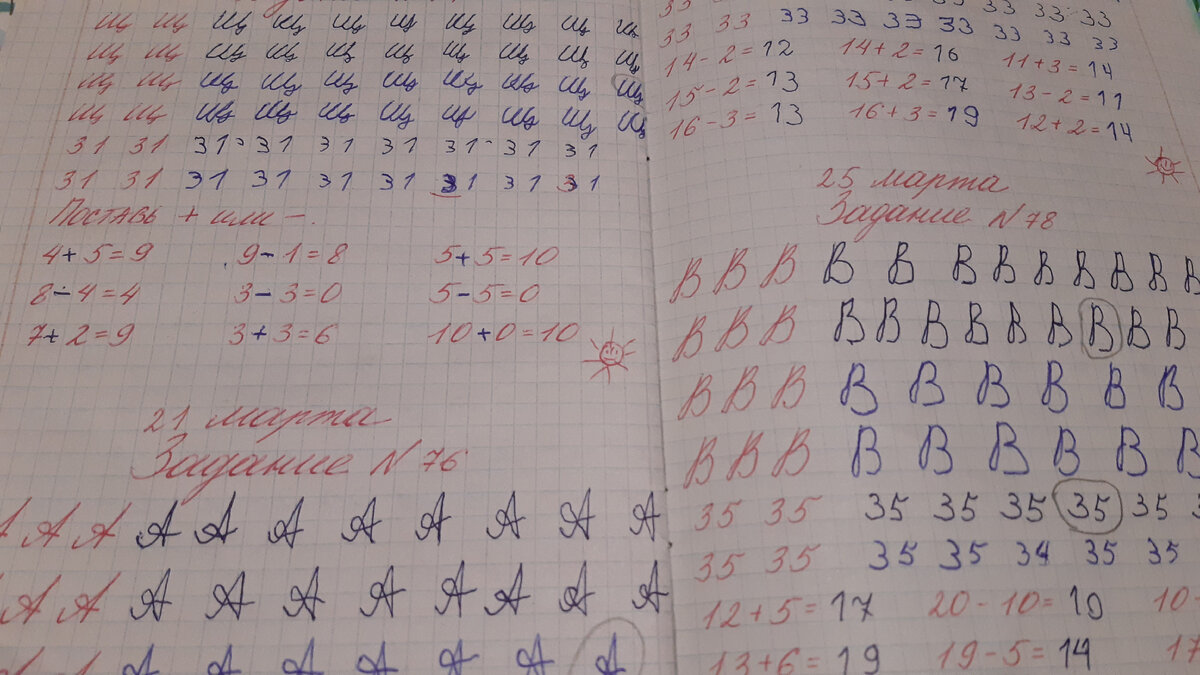 щ щ щ щ щ щ щ щ щ щ
щ щ щ щ щ щ щ щ щ щ
щ щ щ щ щ щ щ щ щ щ
щ щ щ щ щ щ щ щ щ щ
31 31 31 31 31 31 31 31 31
31 31 31 31 31 31 31 31 31
Поставь + или –.
4+5=9 9-1=8 5+5=10
8-4=4 3-3=0 5-5=0
7+2=9 3+3=6 10+0=10
21 марта
Задание №76
А А А А А А А А А А А
А А А А А А А А А А
А А А А А А А
33 33 33 33 33
33 33 33 33 33 33 33 33 33
14-2=12 14+2=16 11+3=14
15-2=13 15+2=17 13-2=11
16-3=13 16+3=19 12+2=14
25 марта
Задание №78
В В В В В В В В В В В В
В В В В В В В В В В В В
В В В В В В В В В
В В В В В В В В В
35 35 35 35 35 35 35
35 35 35 35 34 35 35
12+5=17 20-10=10 10-
13+6=19 19-5=14 17